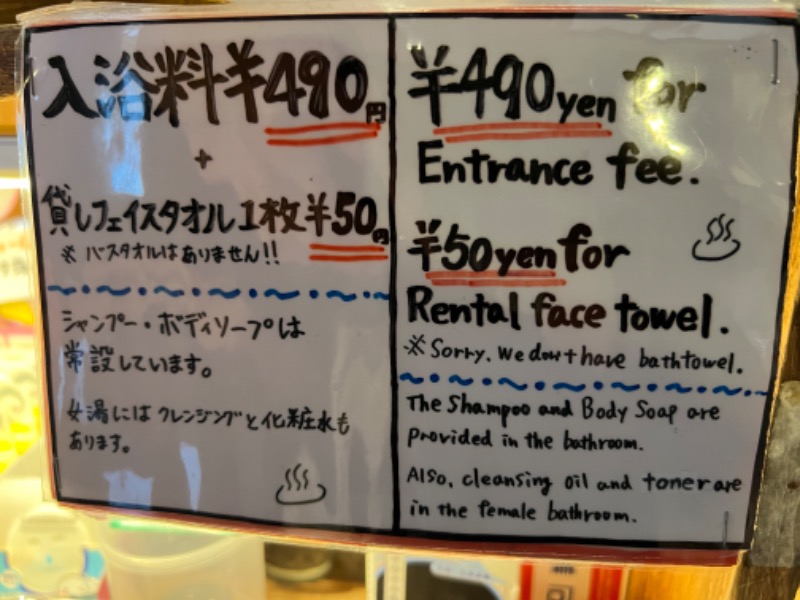 入浴料¥490円
+
貸しフェイスタオル1枚¥50円
※ バスタオルはありません!!
シャンプー・ボディソープは
常設しています。
女湯にはクレンジングと化粧水も
あります。
¥490yen for
Entrance fee.
¥50yen for
Rental face towel.
※Sorry. We don't have bathtowel.
The Shampoo and Body Soap are
Provided in the bathroom.
Also, cleansing oil and toner are
in the female bathroom.